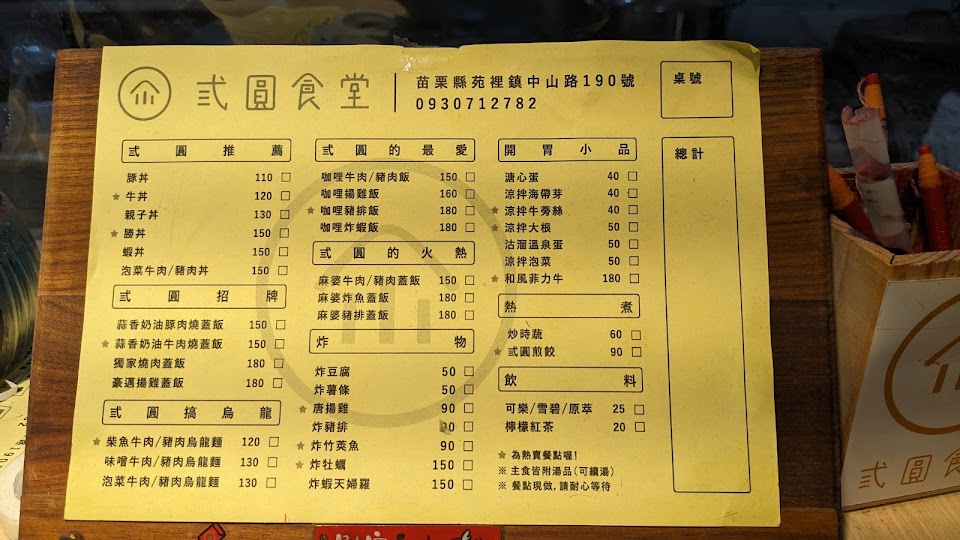 弍圓食堂
苗栗縣苑裡鎮中山路190號
0930712782
桌號
總計
弍圓推薦
豚丼 110
★ 牛丼 120
親子丼 130
★ 勝丼 150
蝦丼 150
泡菜牛肉/豬肉丼 150
弍圓招牌
蒜香奶油豚肉燒蓋飯 150
★ 蒜香奶油牛肉燒蓋飯 150
獨家燒肉蓋飯 180
豪邁揚雞蓋飯 180
弍圓搞烏龍
★ 柴魚牛肉/豬肉烏龍麵 120
味噌牛肉/豬肉烏龍麵 130
泡菜牛肉/豬肉烏龍麵 130
弍圓的最愛
咖哩牛肉/豬肉飯 150
咖哩揚雞飯 160
★ 咖哩豬排飯 180
咖哩炸蝦飯 180
弍圓的火熱
麻婆牛肉/豬肉蓋飯 150
麻婆炸魚蓋飯 180
麻婆豬排蓋飯 180
炸物
炸豆腐 50
炸薯條 50
★ 唐揚雞 90
炸豬排 90
★ 炸竹莢魚 90
★ 炸牡蠣 150
炸蝦天婦羅 150
開胃小品
溏心蛋 40
涼拌海帶芽 40
★ 涼拌牛蒡絲 40
★ 涼拌大根 50
沽溜溫泉蛋 50
涼拌泡菜 50
★ 和風菲力牛 180
熱煮
炒時蔬 60
★ 弍圓煎餃 90
飲料
可樂/雪碧/原萃 25
檸檬紅茶 20
★ 為熱賣餐點喔!
※ 主食皆附湯品(可續湯)
※ 餐點現做,請耐心等待
弍圓食